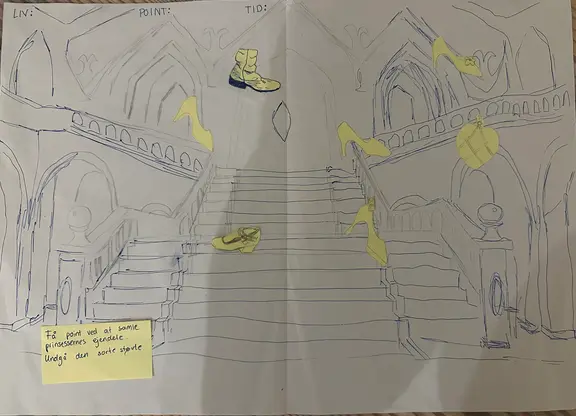 LIV: POINT: TID:
Få point ved at samle
prinsessernes ejendele.
Undgå den sorte støvle